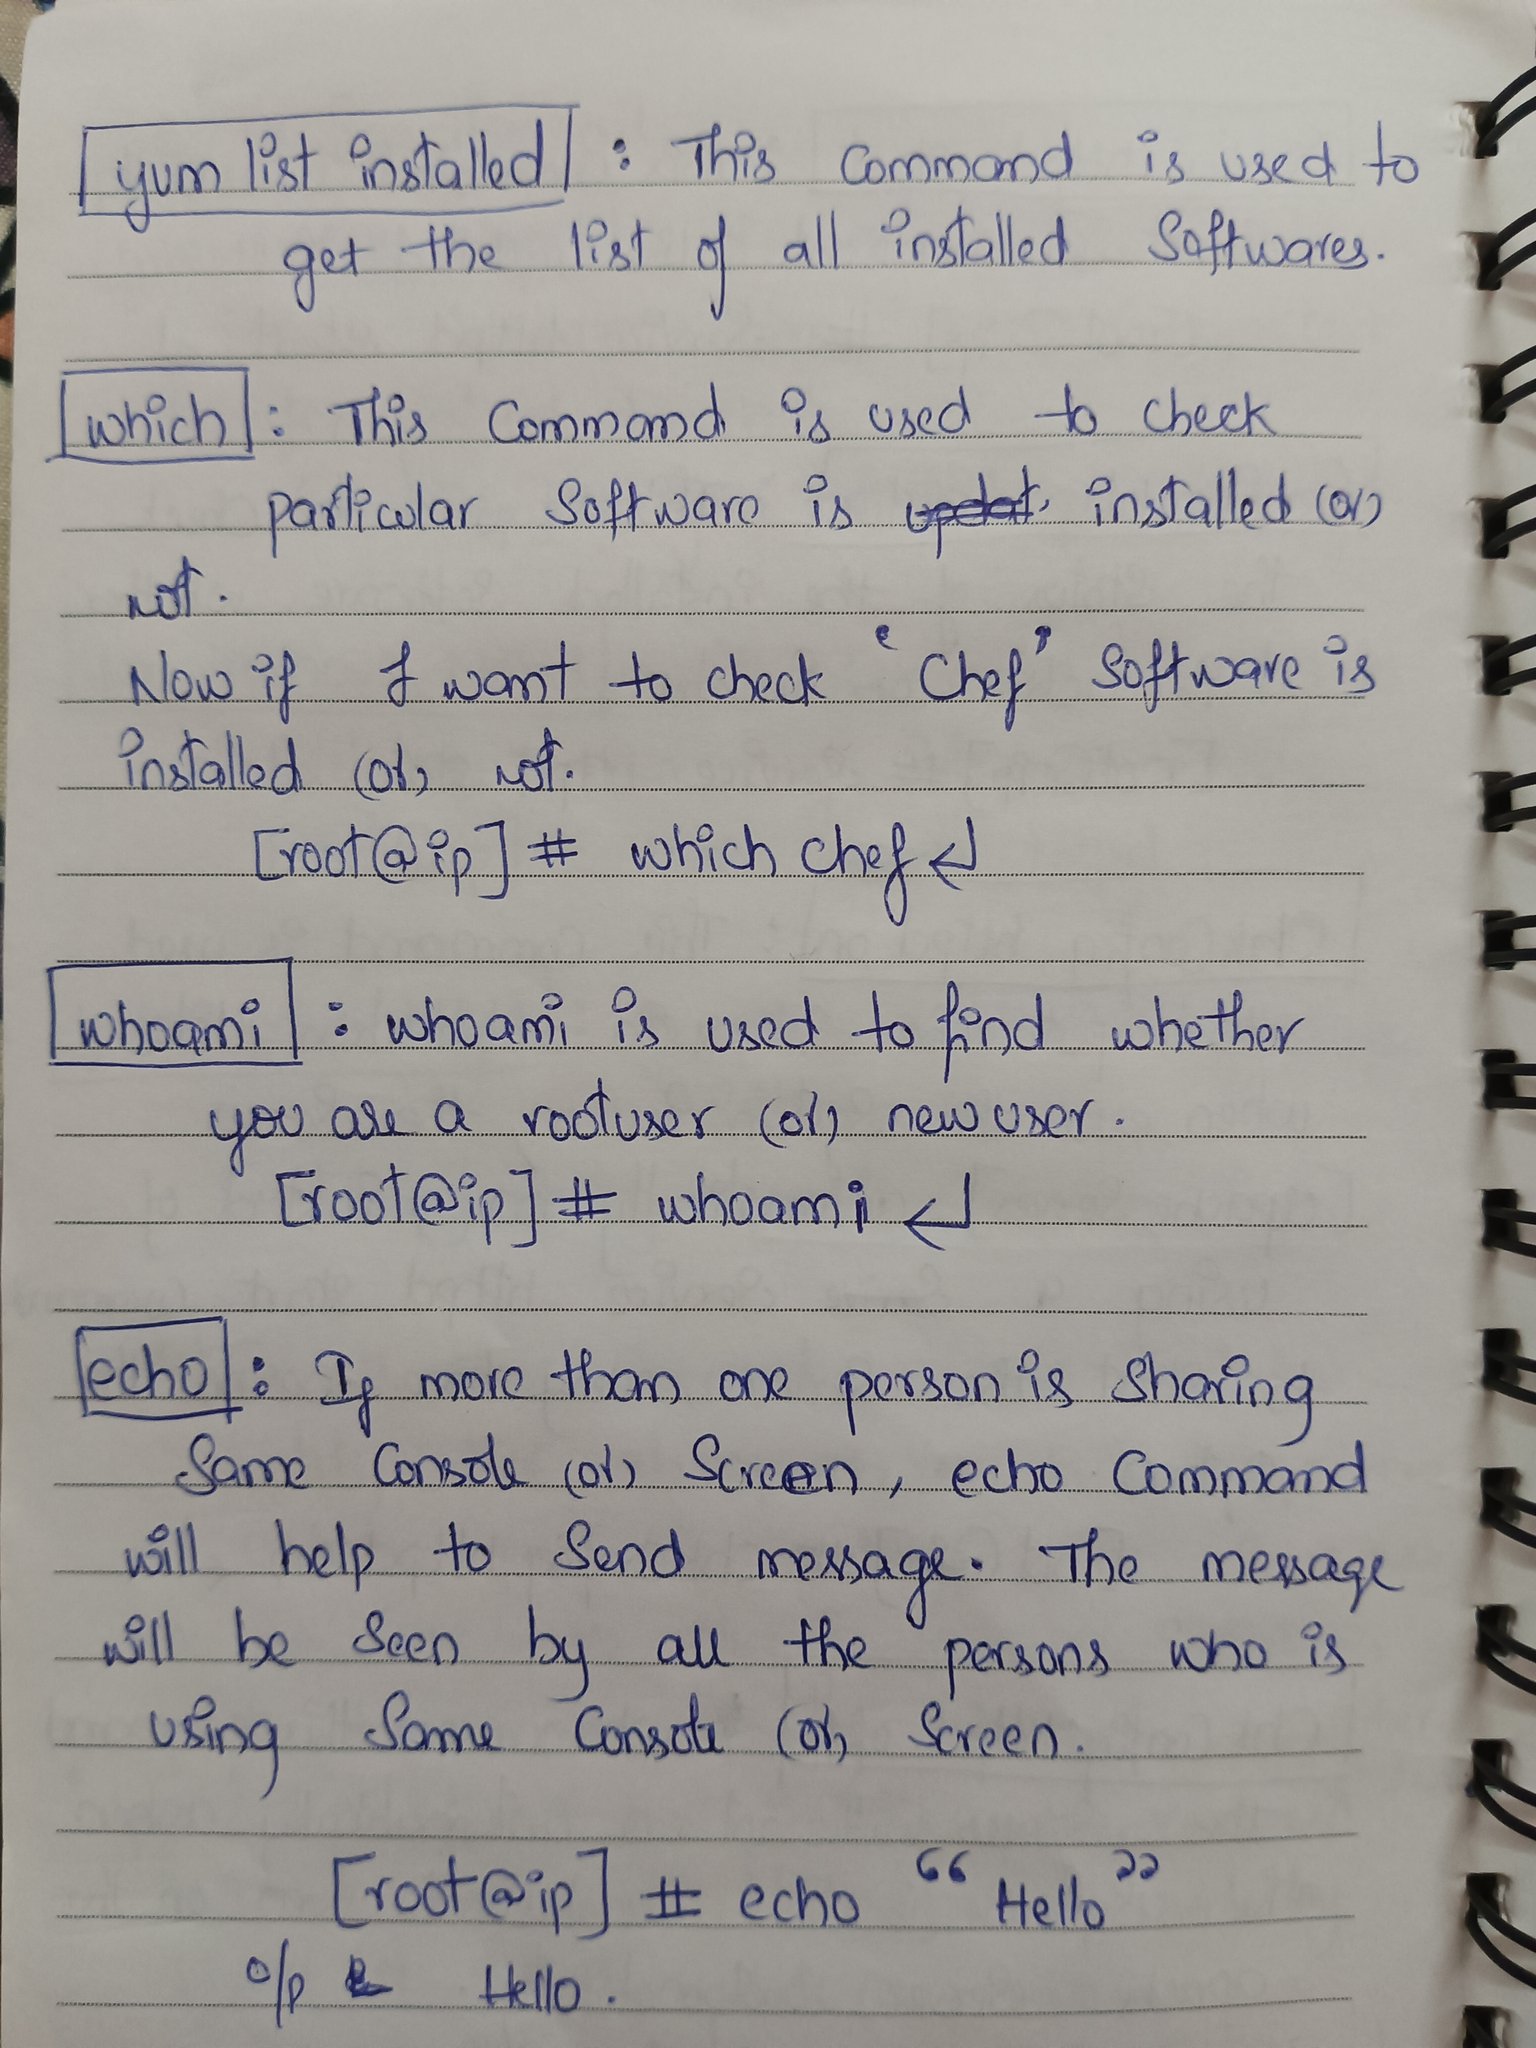 yum list installed : This Command is used to
get the list of all installed Softwares.
which : This Command is used to check
particular Software is updat installed (or)
not.
Now if I want to check 'Chef' Software is
installed (or) not.
[root@ip] # which chef ↵
whoami : whoami is used to find whether
you are a rootuser (or) new user.
[root@ip] # whoami ↵
echo : If more than one person is Sharing
Same Console (or) Screen, echo Command
will help to Send message. The message
will be Seen by all the persons who is
using Same Console (or) Screen.
[root@ip] # echo "Hello"
o/p Hello.